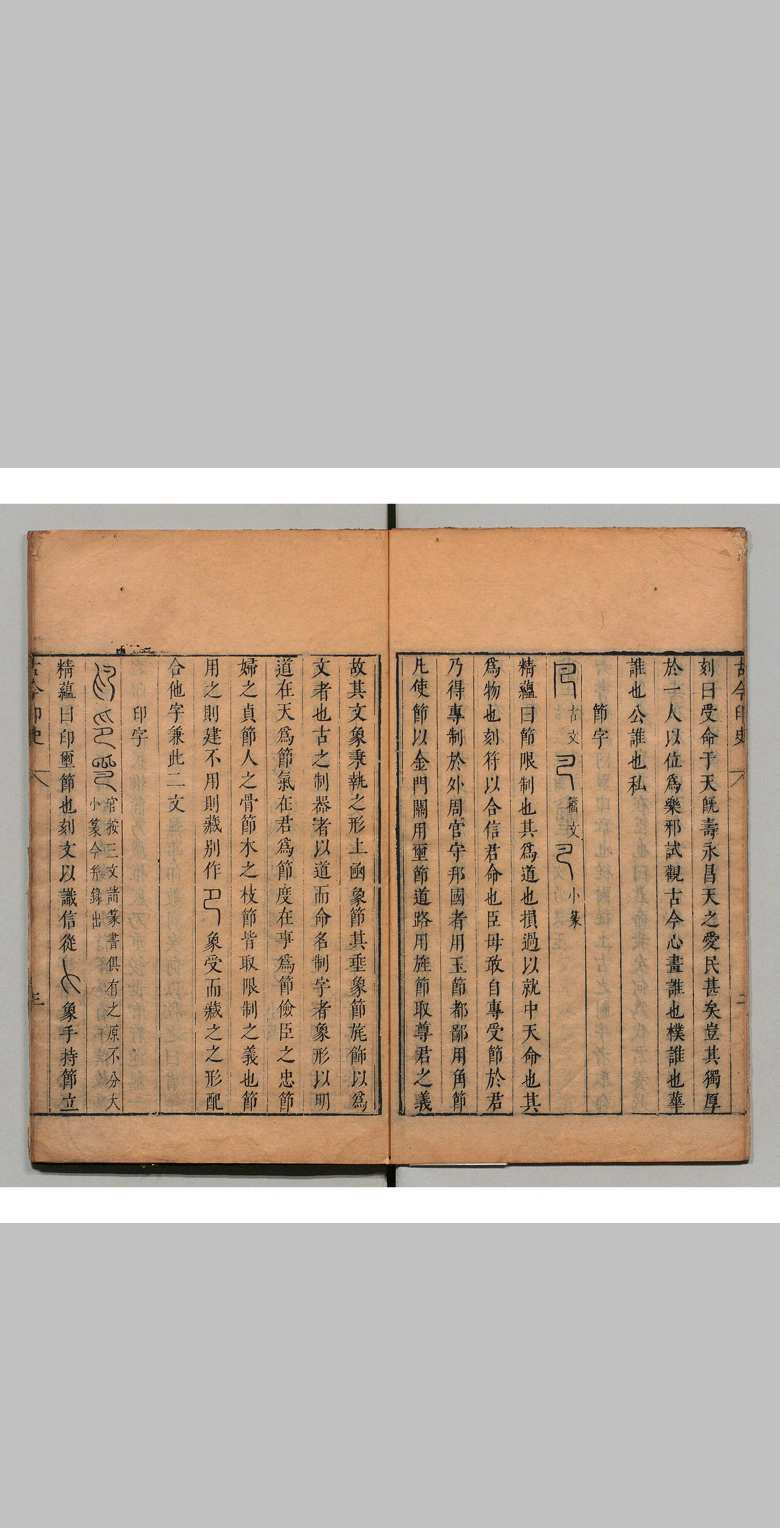 刻曰受命于天旣壽永昌天之愛民甚矣豈其獨厚
於一人以位爲樂邪試觀古今心畫誰也樸誰也華
誰也公誰也私
節字
古文 籀文 小篆
精蘊曰節限制也其爲道也損過以就中天命也其
爲物也刻符以合信君命也臣毋敢自專受節於君
乃得專制於外周官守邦國者用玉節都鄙用角節
凡使節以金門關用璽節道路用旌節取尊君之義
故其文象秉執之形上函象節其垂象節旄飾以爲
文者也古之制器者以道而命名制字者象形以明
道在天爲節氣在君爲節度在事爲節儉臣之忠節
婦之貞節人之骨節木之枝節皆取限制之義也節
用之則建不用則藏別作㔾象受而藏之之形配
合他字兼此二文
印字
官按三文諸篆書俱有之原不分大
小篆今發錄出
精蘊曰印璽節也刻文以識信從象手持節立
古今印史